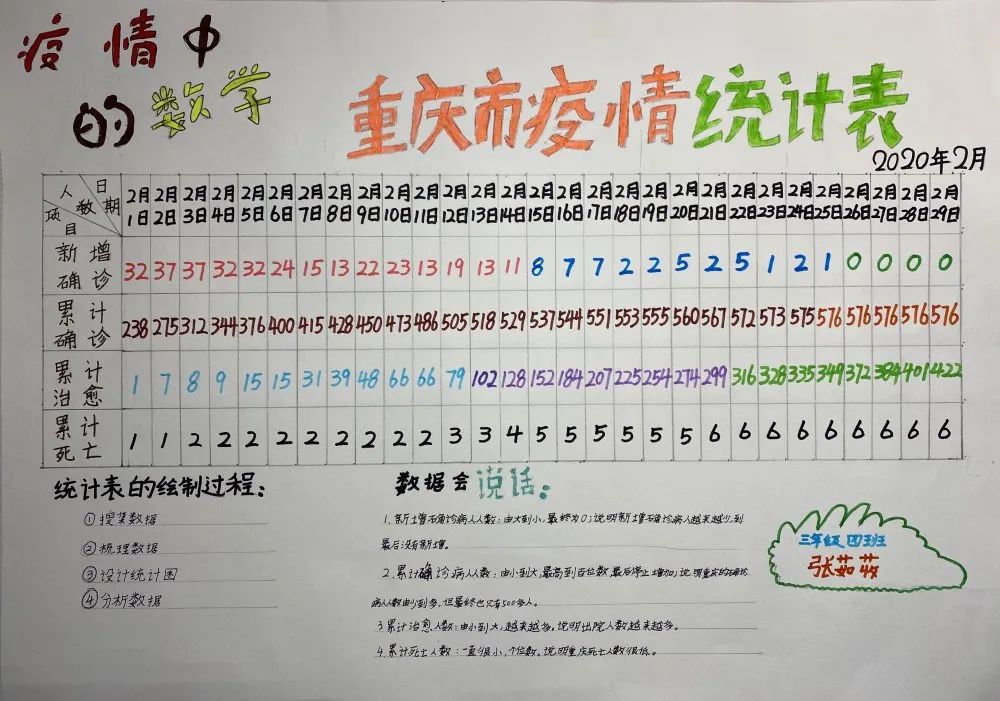 疫情中
的数学
重庆市疫情统计表
2020年2月
人数 日期 项目 2月1日 2月2日 2月3日 2月4日 2月5日 2月6日 2月7日 2月8日 2月9日 2月10日 2月11日 2月12日 2月13日 2月14日 2月15日 2月16日 2月17日 2月18日 2月19日 2月20日 2月21日 2月22日 2月23日 2月24日 2月25日 2月26日 2月27日 2月28日 2月29日
新增确诊 32 37 37 32 32 24 15 13 22 23 13 19 13 11 8 7 7 2 2 5 2 5 1 2 1 0 0 0 0
累计确诊 238 275 312 344 376 400 415 428 450 473 486 505 518 529 537 544 551 553 555 560 567 572 573 575 576 576 576 576 576
累计治愈 1 7 8 9 15 15 31 39 48 66 66 79 102 128 152 184 207 225 254 274 299 316 328 335 349 372 384 401 422
累计死亡 1 1 2 2 2 2 2 2 2 2 2 3 3 4 5 5 5 5 5 5 6 6 6 6 6 6 6 6 6
统计表的绘制过程:
①搜集数据
②梳理数据
③设计统计图
④分析数据
数据会说话:
1.新增确诊病人人数:由大到小,最终为0;说明新增确诊病人越来越少,到
最后没有新增。
2.累计确诊病人人数:由小到大,最高到百位数,最后停止增加;说明重庆的确诊
病人人数由少到多,但最终也只有500多人。
3.累计治愈人数:由小到大,越来越多。说明出院人数越来越多。
4.累计死亡人数:一直很小,个位数。说明重庆死亡人数很低。
三年级四班
张茹